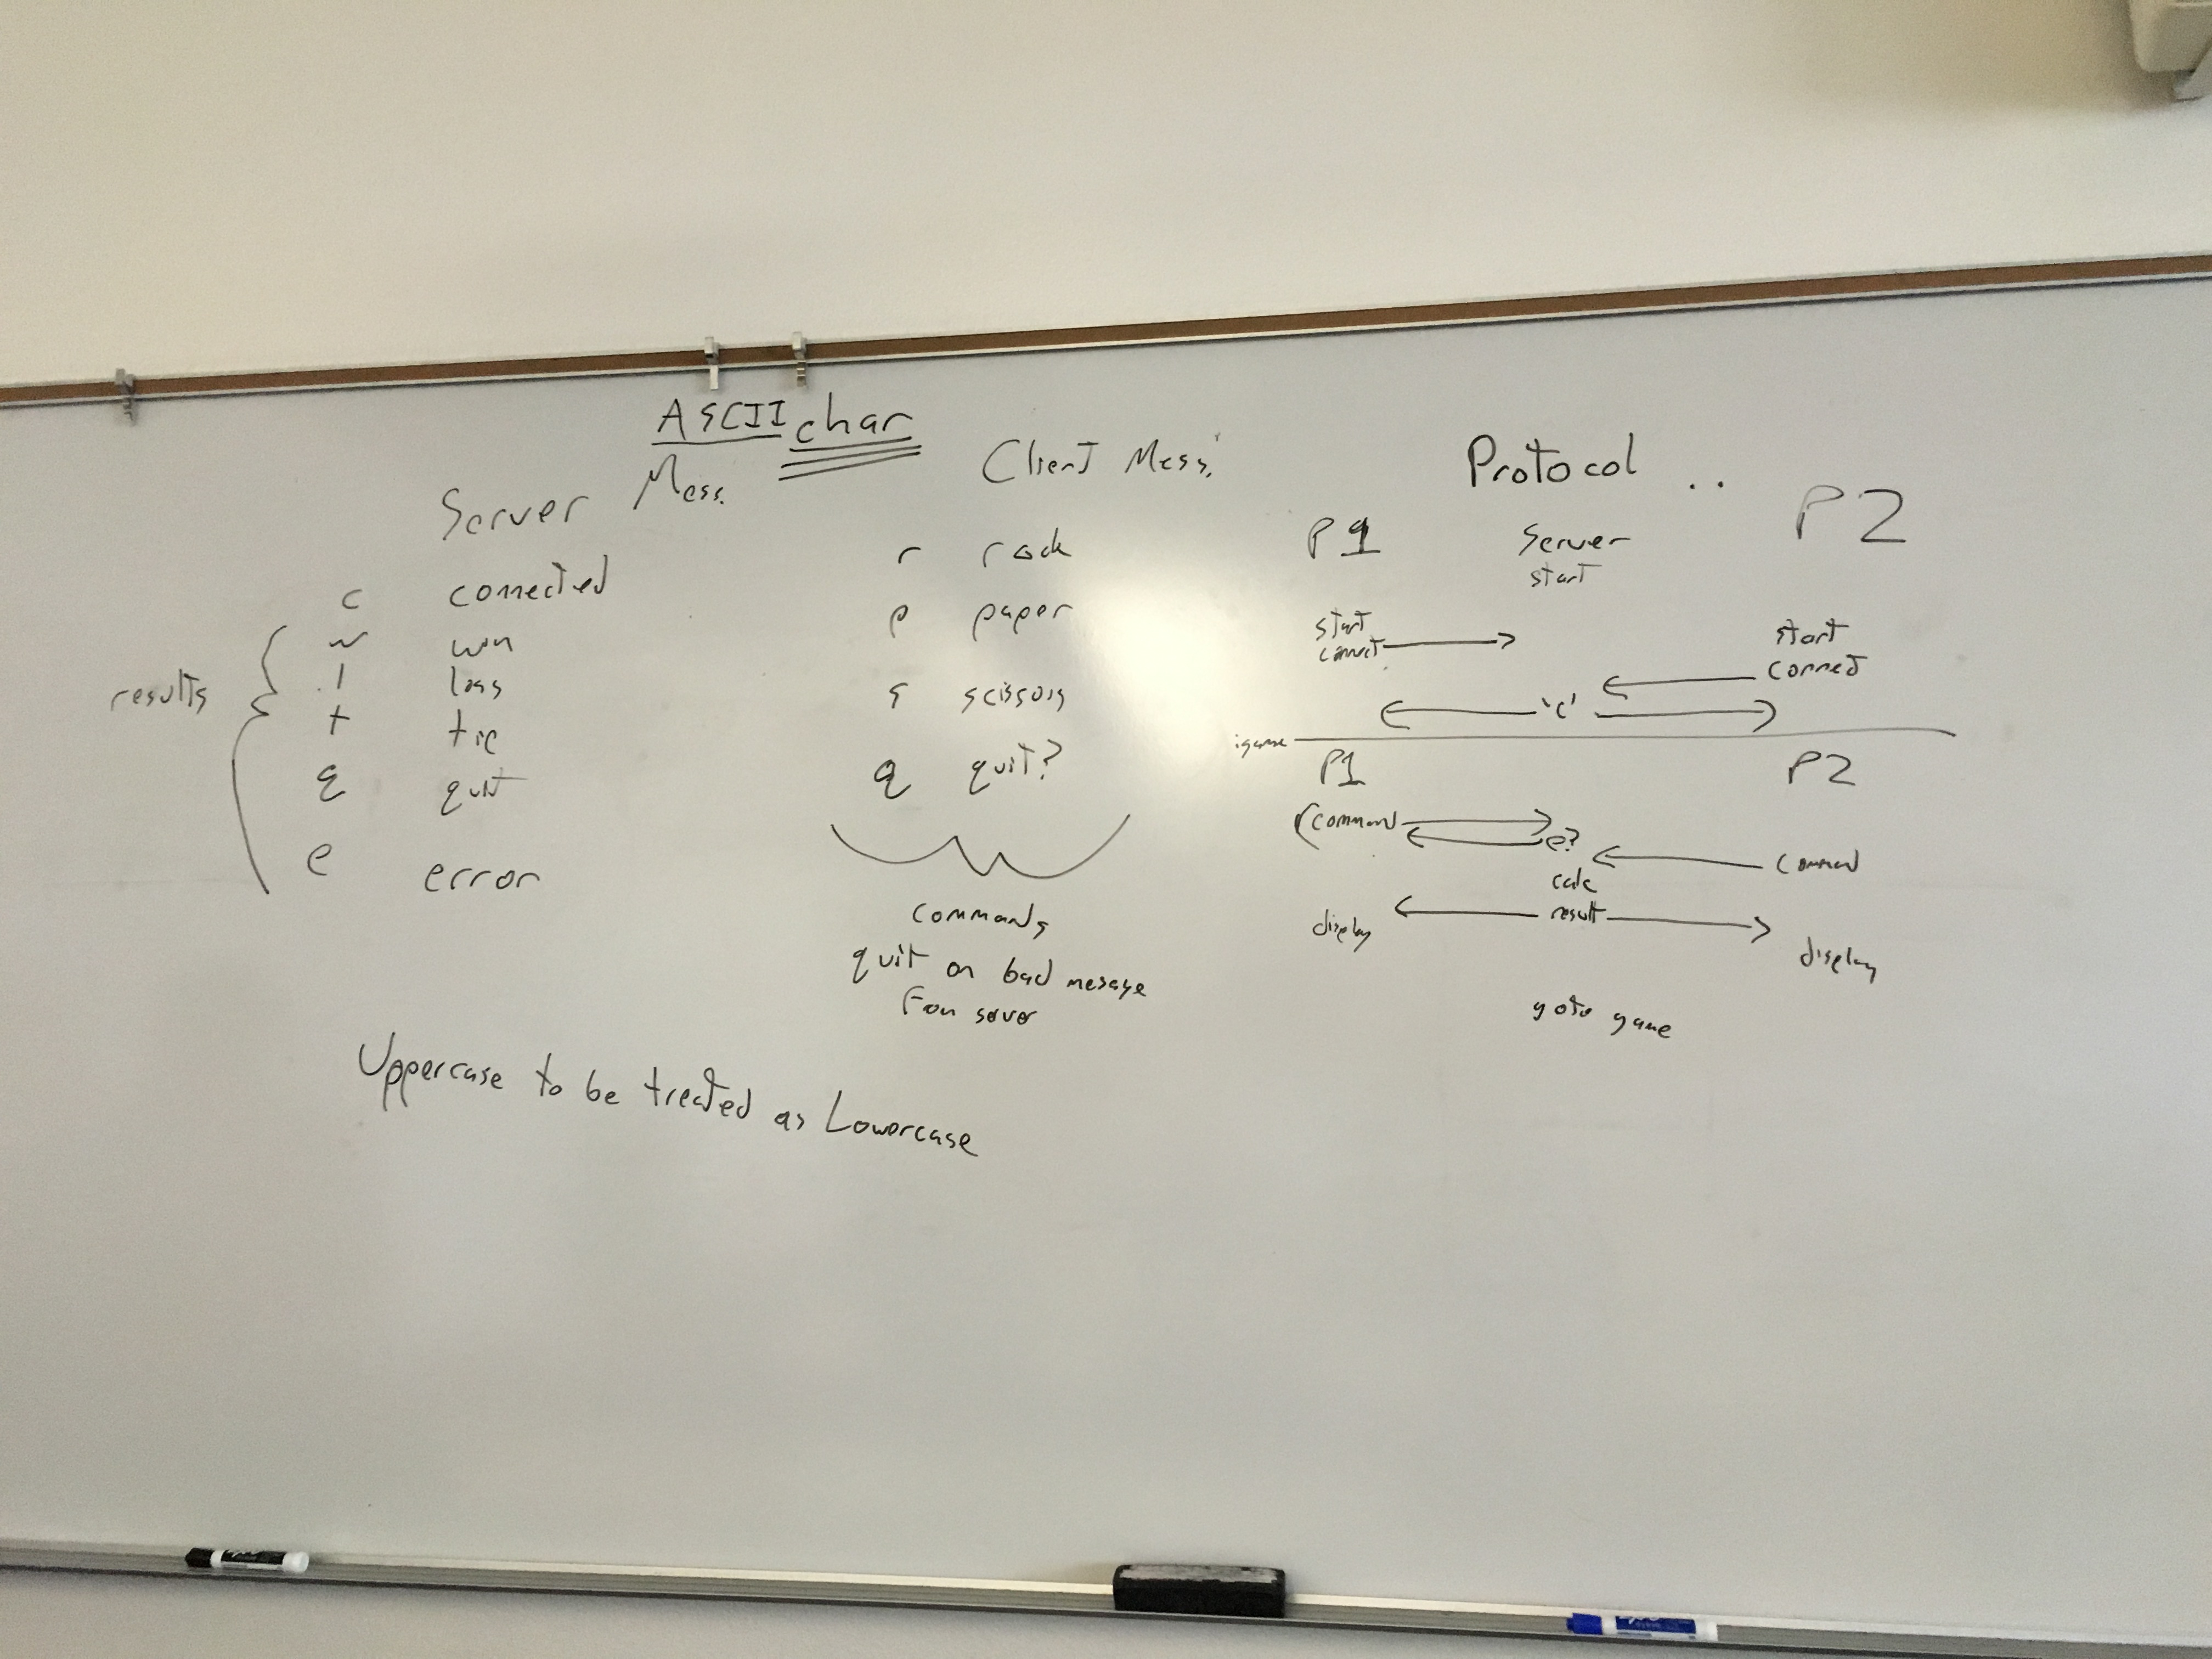 ASCII char
Server Mess.
c connected
w win
l loss
t tie
q quit
e error
results
Client Mess.
r rock
p paper
s scissors
q quit?
commands
quit on bad mesage
From server
Uppercase to be treated as Lowercase
Protocol ..
P1 Server P2
start
start start
connect connect
'c'
game
P1 P2
command e? command
calc
display result display
goto game